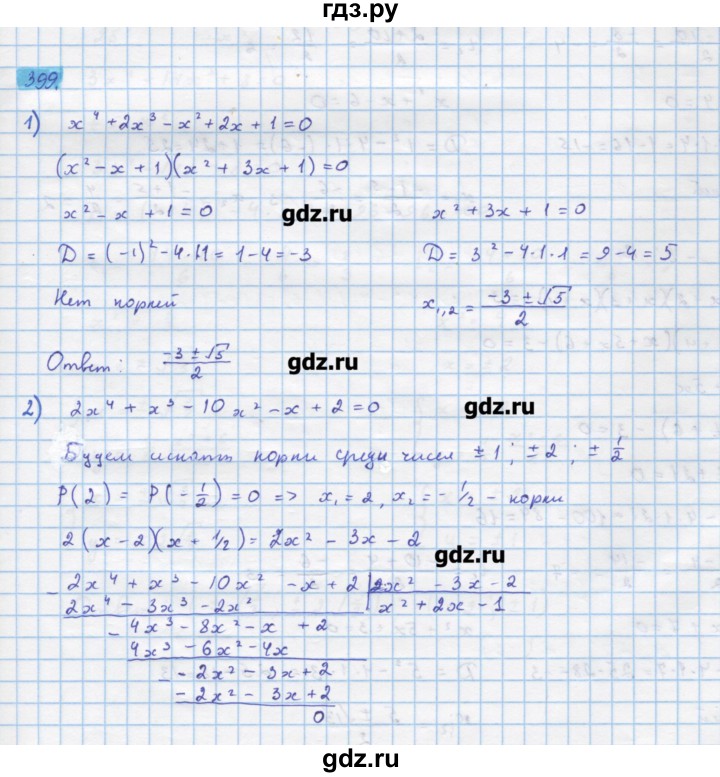 гдз.ру
399.
1) x⁴ + 2x³ − x² + 2x + 1 = 0
(x² − x + 1)(x² + 3x + 1) = 0
x² − x + 1 = 0 x² + 3x + 1 = 0
gdz.ru
D = (−1)² − 4·1·1 = 1 − 4 = −3 D = 3² − 4·1·1 = 9 − 4 = 5
Нет корней x₁,₂ = (−3 ± √5)/2
Ответ: (−3 ± √5)/2
gdz.ru
2) 2x⁴ + x³ − 10x² − x + 2 = 0
gdz.ru
Будем искать корни среди чисел ±1; ±2; ±1/2
P(2) = P(−1/2) = 0 => x₁ = 2, x₂ = −1/2 − корни
2(x − 2)(x + 1/2) = 2x² − 3x − 2
gdz.ru
− 2x⁴ + x³ − 10x² − x + 2 | 2x² − 3x − 2
2x⁴ − 3x³ − 2x² x² + 2x − 1
− 4x³ − 8x² − x + 2
4x³ − 6x² − 4x
− −2x² − 3x + 2
− 2x² − 3x + 2
0
gdz.ru
gdz.ru